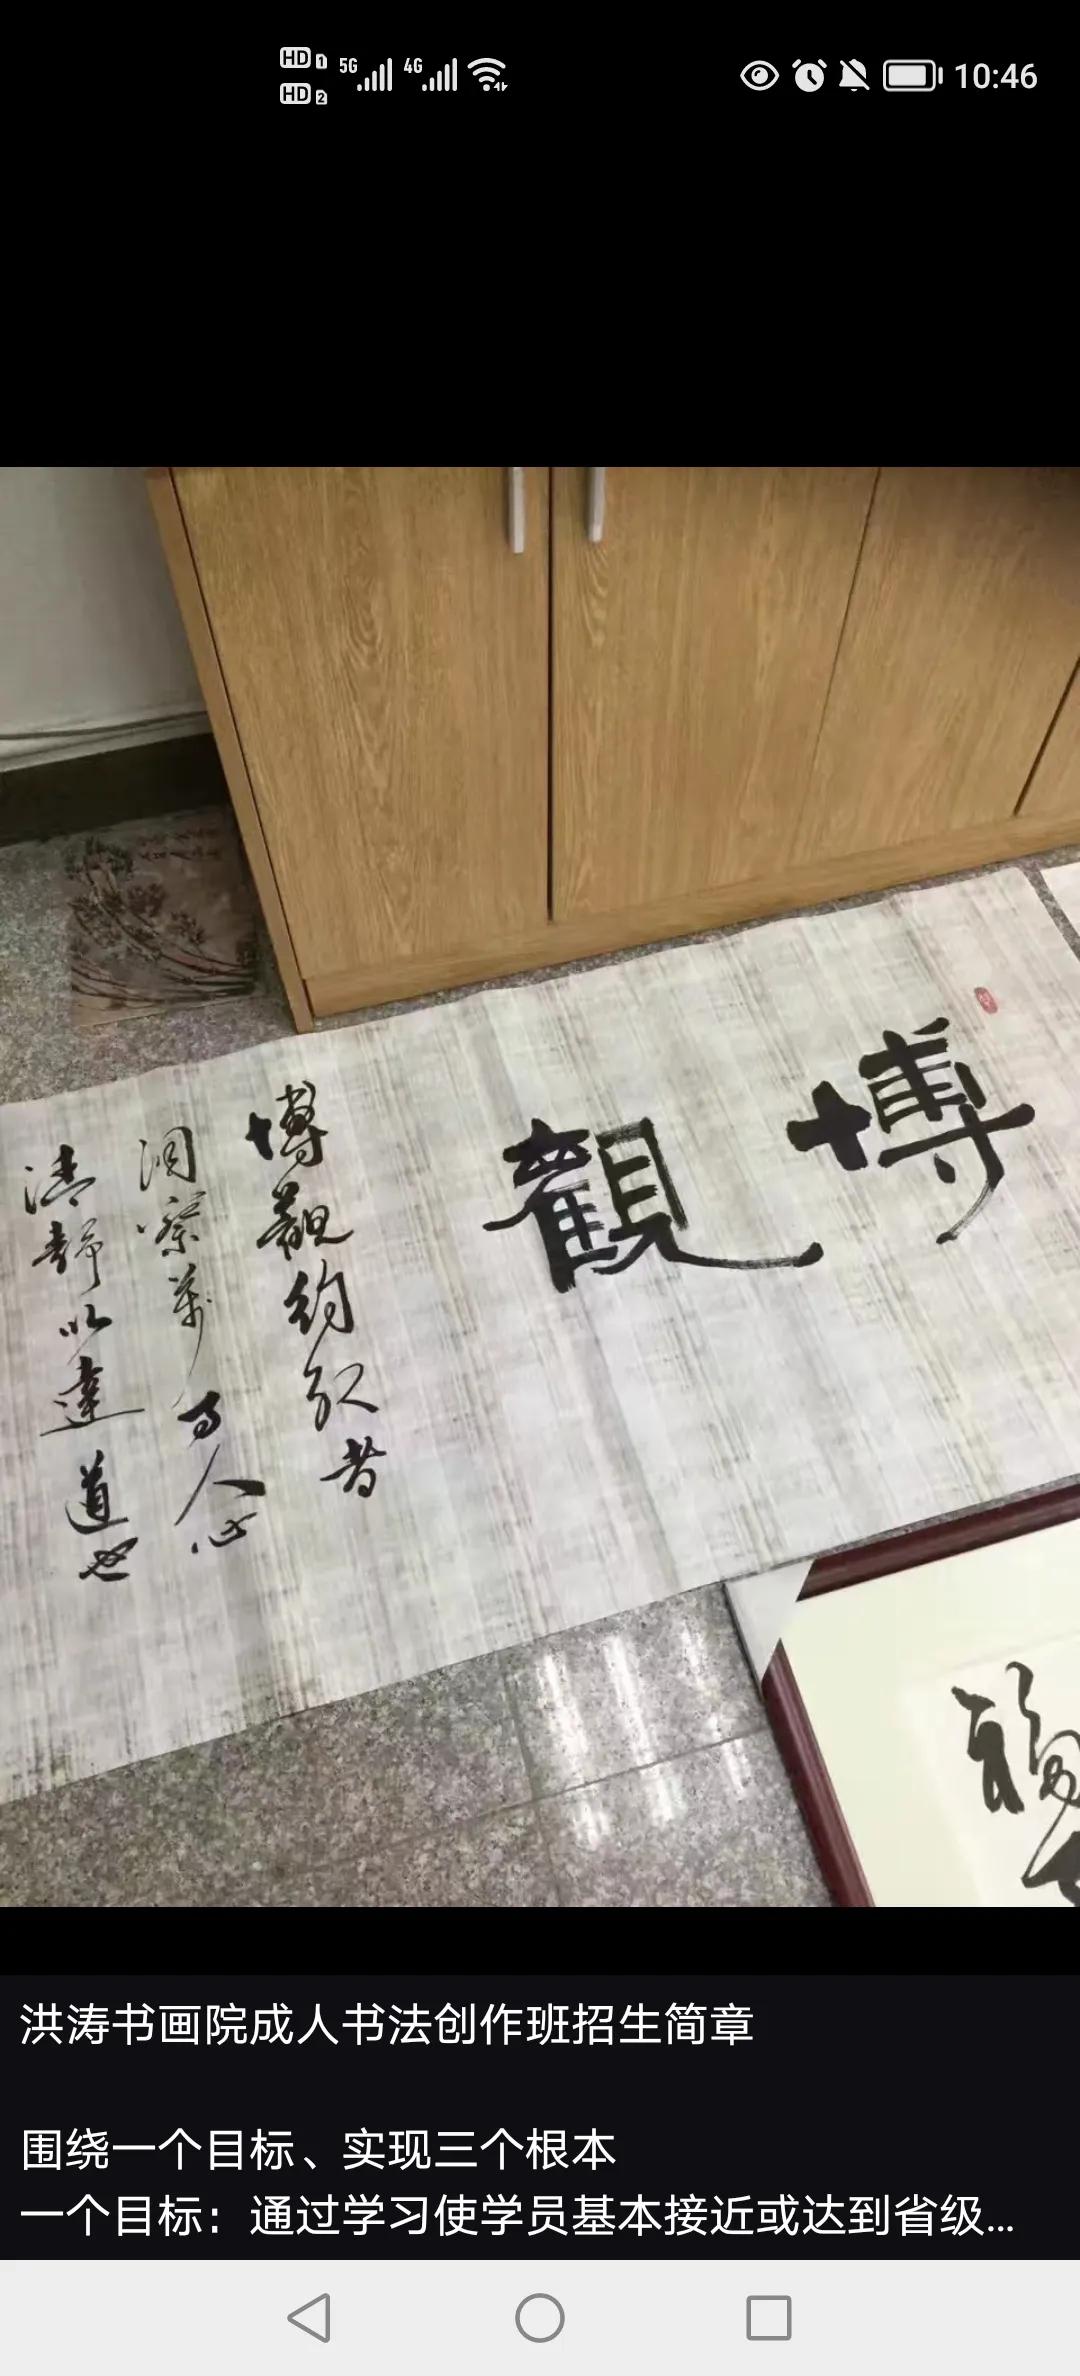 HD 1 5G 4G
HD 2
10:46
博觀
博觀約取者
洞察萬
人心
清静以達道也
福
洪涛书画院成人书法创作班招生简章
围绕一个目标、实现三个根本
一个目标：通过学习使学员基本接近或达到省级...